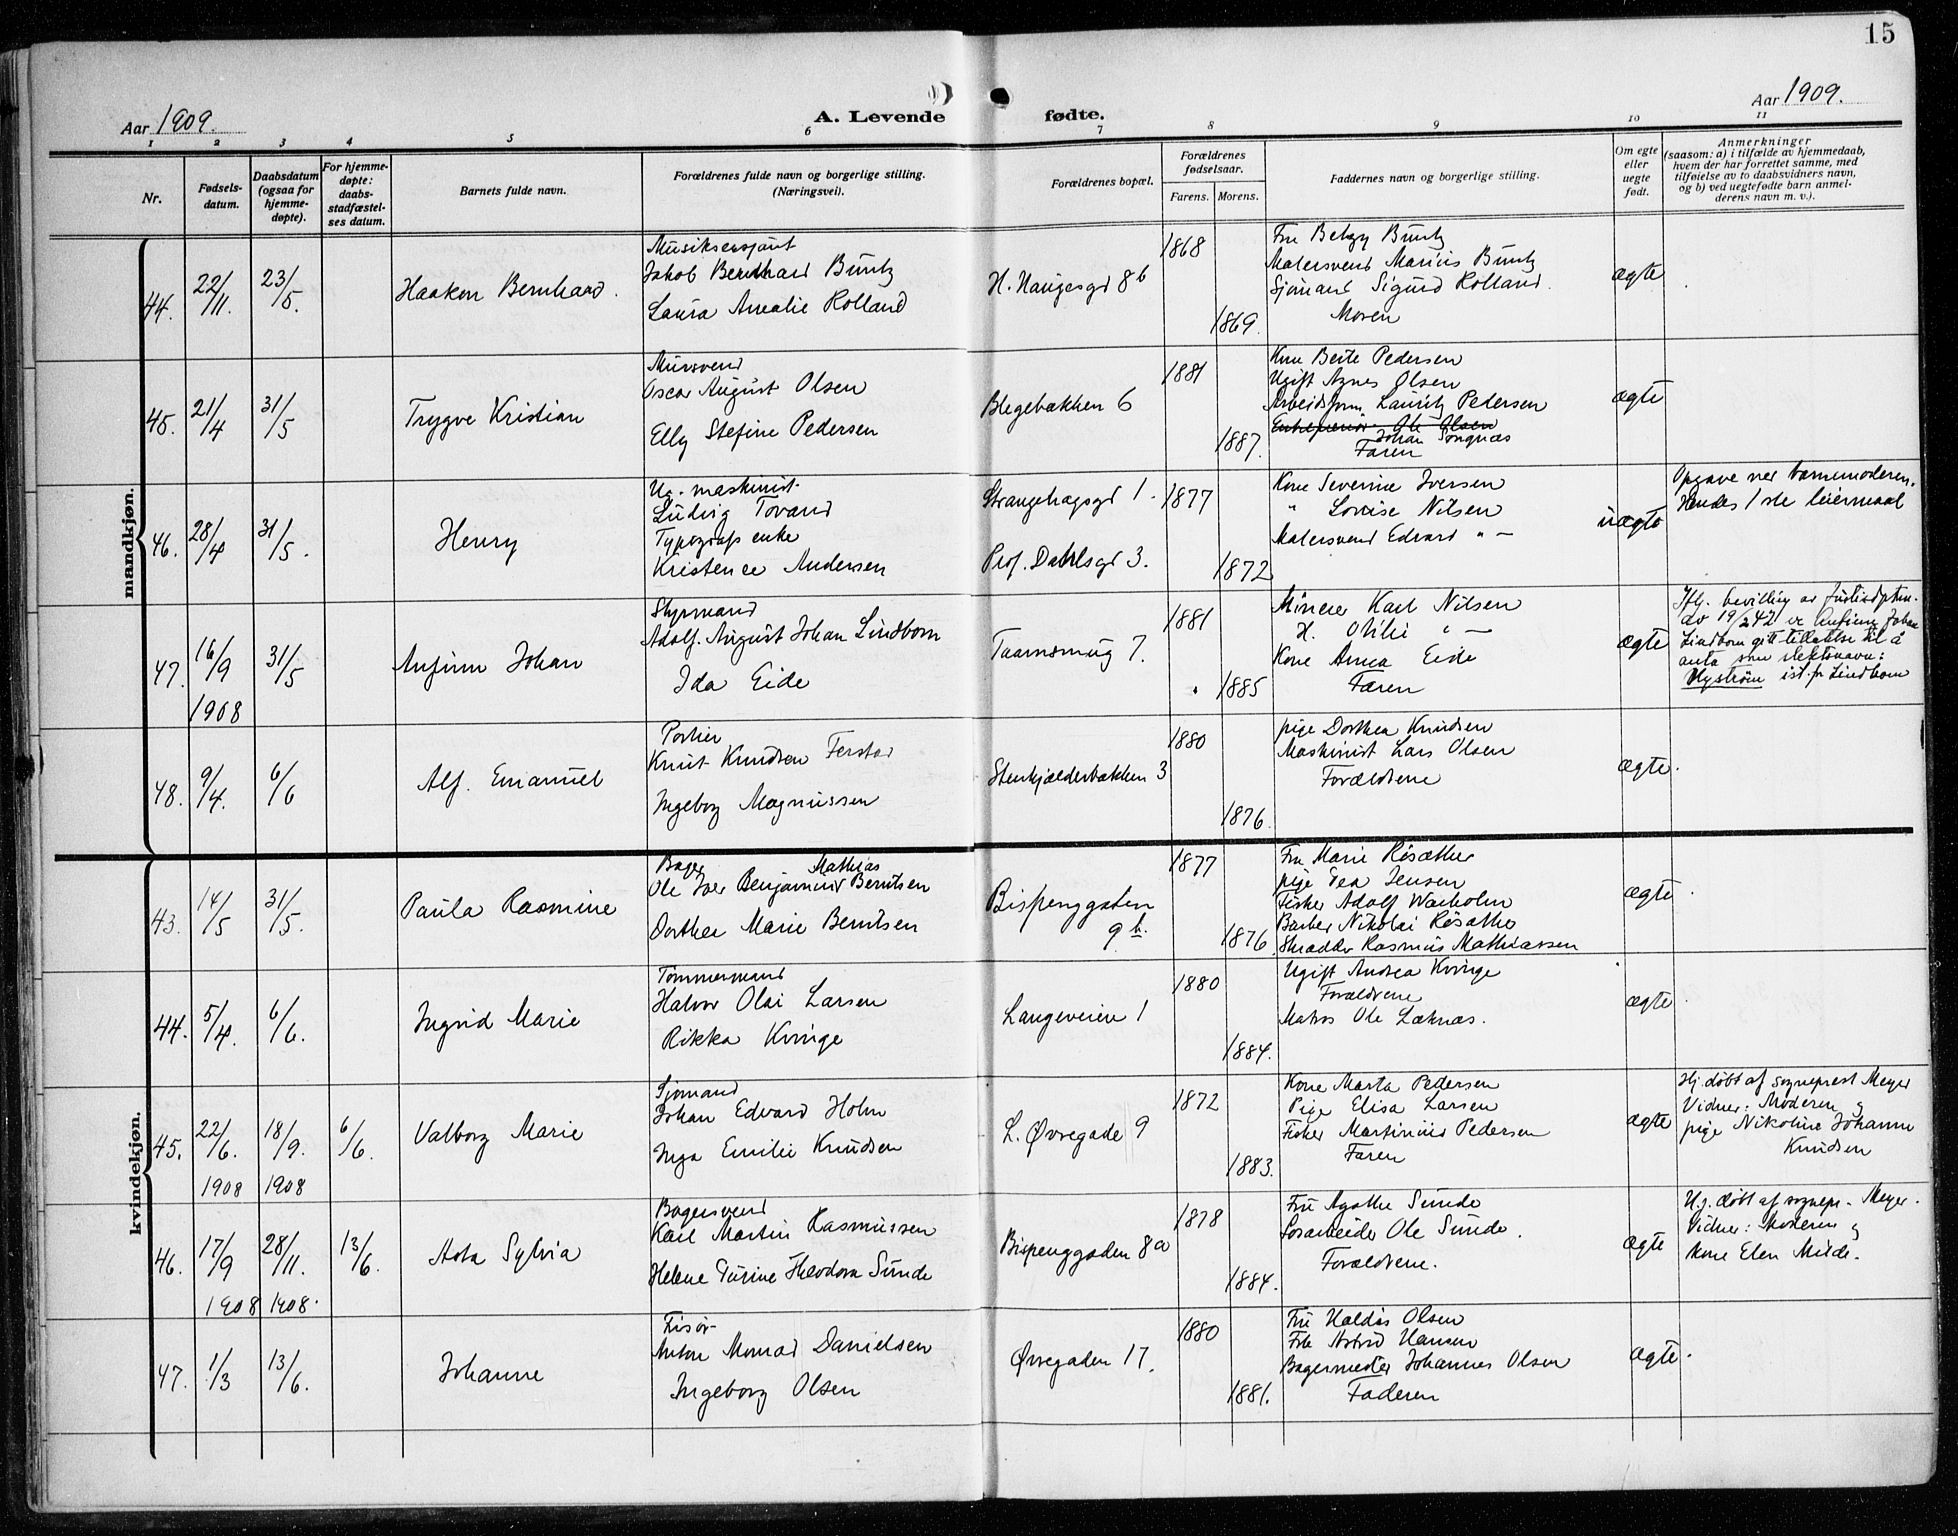 15
Aar 1909.
A. Levende fødte.
Aar 1909.
1 2 3 4 5 6 7 8 9 10 11
Nr.
Fødsels-
datum.
Daabsdatum
(ogsaa for
hjemme-
døpte).
For hjemme-
døpte:
daabs-
stadfæstel-
ses datum.
Barnets fulde navn.
Forældrenes fulde navn og borgerlige stilling.
(Næringsvei).
Forældrenes bopæl.
Forældrenes
fødselsaar.
Farens. Morens.
Faddernes navn og borgerlige stilling.
Om egte
eller
uegte
født.
Anmerkninger
(saasom: a) i tilfælde av hjemmedaab,
hvem der har forrettet samme, med
tilføielse av to daabsvidners navn,
og b) ved uegtefødte barn anmel-
derens navn m. v.).
mandkjøn.
44. 22/11. 23/5. Haakon Bernhard.
Jakob Bernhard Buntz
Laura Amalie Rolland
H. Haugesgd 8b
1868
1869.
Fru Betzy Buntz
Malersvend Marius Buntz
Sjømand Sigurd Rolland.
Moren
ægte
45. 21/4 31/5 Trygve Kristian
Mursvend
Oscar August Olsen
Elly Stefine Pedersen
Blegebakken 6
1881
1887.
Kone Berte Pedersen
Ugift Agnes Olsen
Arbeidsform. Lauritz Pedersen
Entreprenør Ole Olsen
Johan Songnæs
Faren
ægte
46. 28/4 31/5. Henry
Ug. maskinist
Ludvig Tovand
Typografs enke
Kristence Andersen
Strangehagsgd 1.
Prof. Dahlsgd 3.
1877
1872
Kone Severine Iversen
" Lovise Nilsen
Malersvend Edvard " —
uægte
Opgave ved barnemoderen.
Hendes 1ste leiermaal
47. 16/9 1908 31/5 Anfinn Johan
Styrmand
Adolf August Johan Lindbom
Ida Eide
Taarnsmug 7.
1881
1885
Minerer Karl Nilsen
H. Otilie " —
Kone Anna Eide
Faren
ægte
Iflg. bevilling av Justisdptm.
av 19/2 42 er Anfinn Johan
Lindbom gitt tillatelse til å
anta som slektsnavn:
Nystrøm ist. fr Lindbom
48. 9/4. 6/6 Alf Emanuel
Portier
Knut Knudsen Ferstad
Ingeborg Magnussen
Stenkjælderbakken 3
1880
1876.
pige Dorthea Knudsen
Maskinist Lars Olsen
Forældrene
ægte.
kvindekjøn.
43. 14/5 31/5. Paula Rasmine
Bager Mathias
Ole Iver Benjamind Berntsen
Dorthea Marie Berntsen
Bispenggaten
9 b.
1877
1876
Fru Marie Røsæther
pige Thea Jensen
Fisker Adolf Warholm
Barber Nikolai Røsæther
Skrædder Rasmus Mathiassen
ægte
44. 5/4. 6/6. Ingrid Marie
Tømmermand
Halvor Olai Larsen
Rikka Kvinge
Langeveien 1
1880
1884.
Ugift Andrea Kvinge
Forældrene
Matros Ole Læknæs.
ægte
45. 22/6. 1908 18/9. 1908 6/6. Valborg Marie
Sjømand
Johan Edvard Holm
Inga Emilie Knudsen
L. Øvregade 9
1872
1883.
Kone Marta Pedersen
Pige Elisa Larsen
Fisker Martinius Pedersen
Faren
ægte
Hj. døbt af sogneprest Meyer
Vidner: Moderen og
pige Nikoline Johanne
Knudsen
46. 17/9 1908 28/11. 1908. 13/6. Asta Sylvia
Bagersvend
Karl Martin Rasmussen
Helene Turine Theodora Sunde
Bispenggaden 8a
1878
1884.
Fru Agathe Sunde
Løsarbeider Ole Sunde.
Forældrene.
ægte
Hj. døbt af sognepr. Meyer.
Vidner: Moderen og
kone Elen Milde.
47. 1/3 13/6. Johanne
Frisør
Anton Monrad Danielsen
Ingeborg Olsen
Øvregaden 17.
1880
1881.
Fru Valdis Olsen
Frk Astrid Hansen
Bagermester Johannes Olsen
Faderen
ægte.